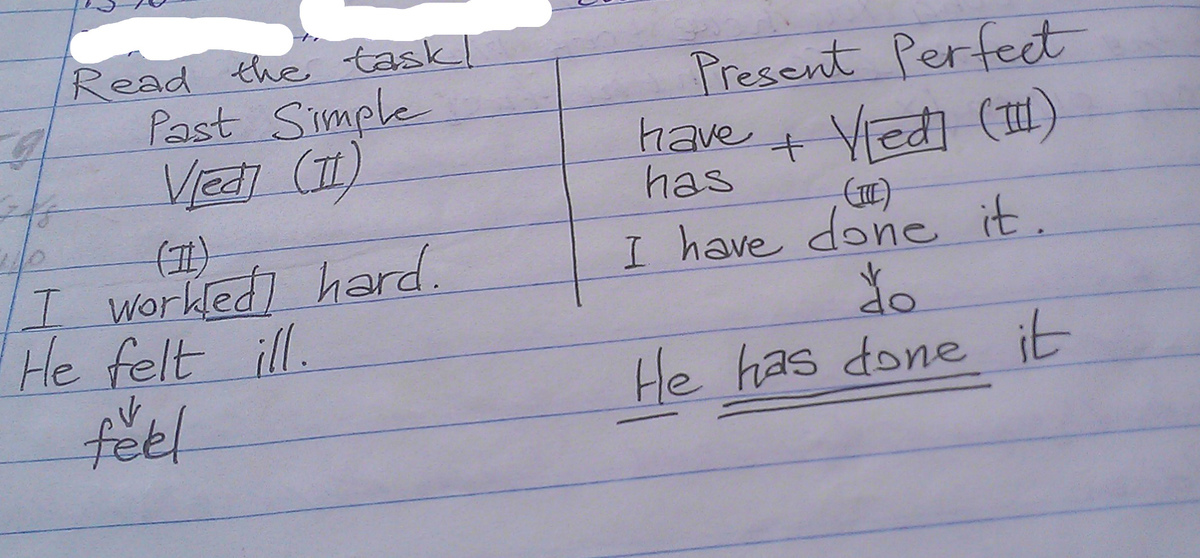 Read the task!
Past Simple
V[ed] (II)
(II)
I work[ed] hard.
He felt ill.
feel
Present Perfect
have
has
+ V[ed] (III)
(III)
I have done it.
do
He has done it